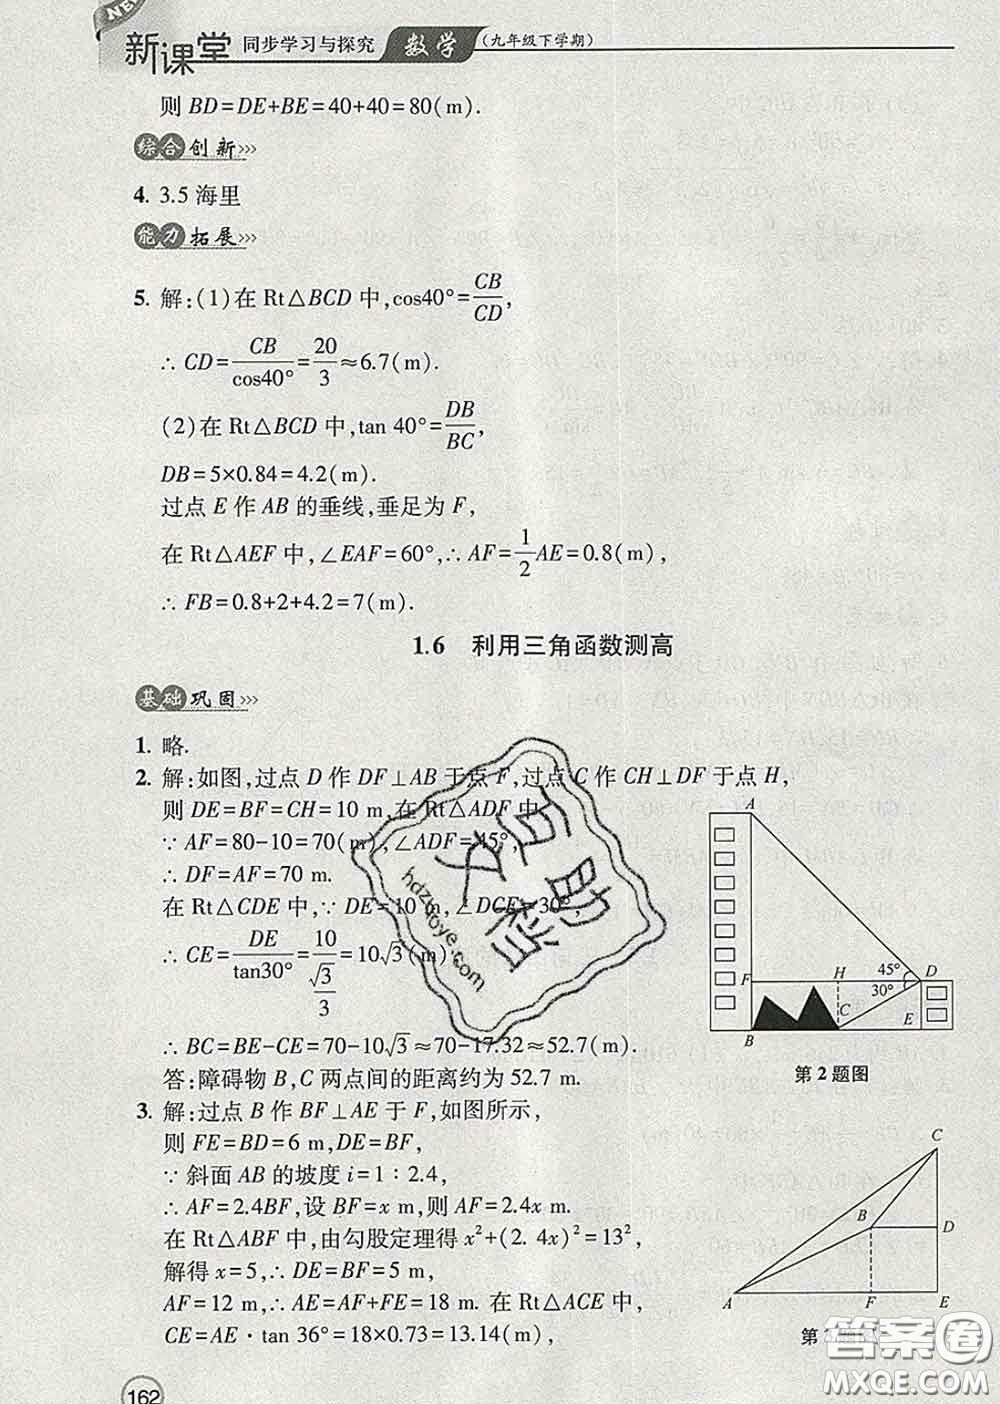 NEW
新课堂 同步学习与探究 数学 (九年级下学期)
则 BD=DE+BE=40+40=80(m).
综合创新>>>
4. 3.5 海里
能力拓展>>>
5. 解:(1)在 Rt△BCD 中,cos40°=CB/CD,
∴ CD=CB/cos40°=20/3≈6.7(m).
(2)在 Rt△BCD 中,tan 40°=DB/BC,
DB=5×0.84=4.2(m).
过点 E 作 AB 的垂线,垂足为 F,
在 Rt△AEF 中,∠EAF=60°,∴ AF=1/2AE=0.8(m),
∴ FB=0.8+2+4.2=7(m).
1.6 利用三角函数测高
基础巩固>>>
1. 略.
2. 解:如图,过点 D 作 DF⊥AB 于点 F,过点 C 作 CH⊥DF 于点 H,
则 DE=BF=CH=10 m,在 Rt△ADF 中,
∵ AF=80-10=70(m),∠ADF=45°,
∴ DF=AF=70 m.
在 Rt△CDE 中,∵ DE=10 m,∠DCE=30°,
∴ CE=DE/tan30°=10/(√3/3)=10√3(m),
∴ BC=BE-CE=70-10√3≈70-17.32≈52.7(m).
答:障碍物 B,C 两点间的距离约为 52.7 m.
A
F
H
45°
D
30°
C
E
B
第2题图
3. 解:过点 B 作 BF⊥AE 于 F,如图所示,
则 FE=BD=6 m,DE=BF,
∵ 斜面 AB 的坡度 i=1:2.4,
∴ AF=2.4BF,设 BF=x m,则 AF=2.4x m.
在 Rt△ABF 中,由勾股定理得 x²+(2.4x)²=13²,
解得 x=5,∴ DE=BF=5 m,
AF=12 m,∴ AE=AF+FE=18 m. 在 Rt△ACE 中,
CE=AE·tan 36°=18×0.73=13.14(m),
C
B
D
A
F
E
第
162
作业帮互助
hdzuoye.com
答案圈
MXQE.COM